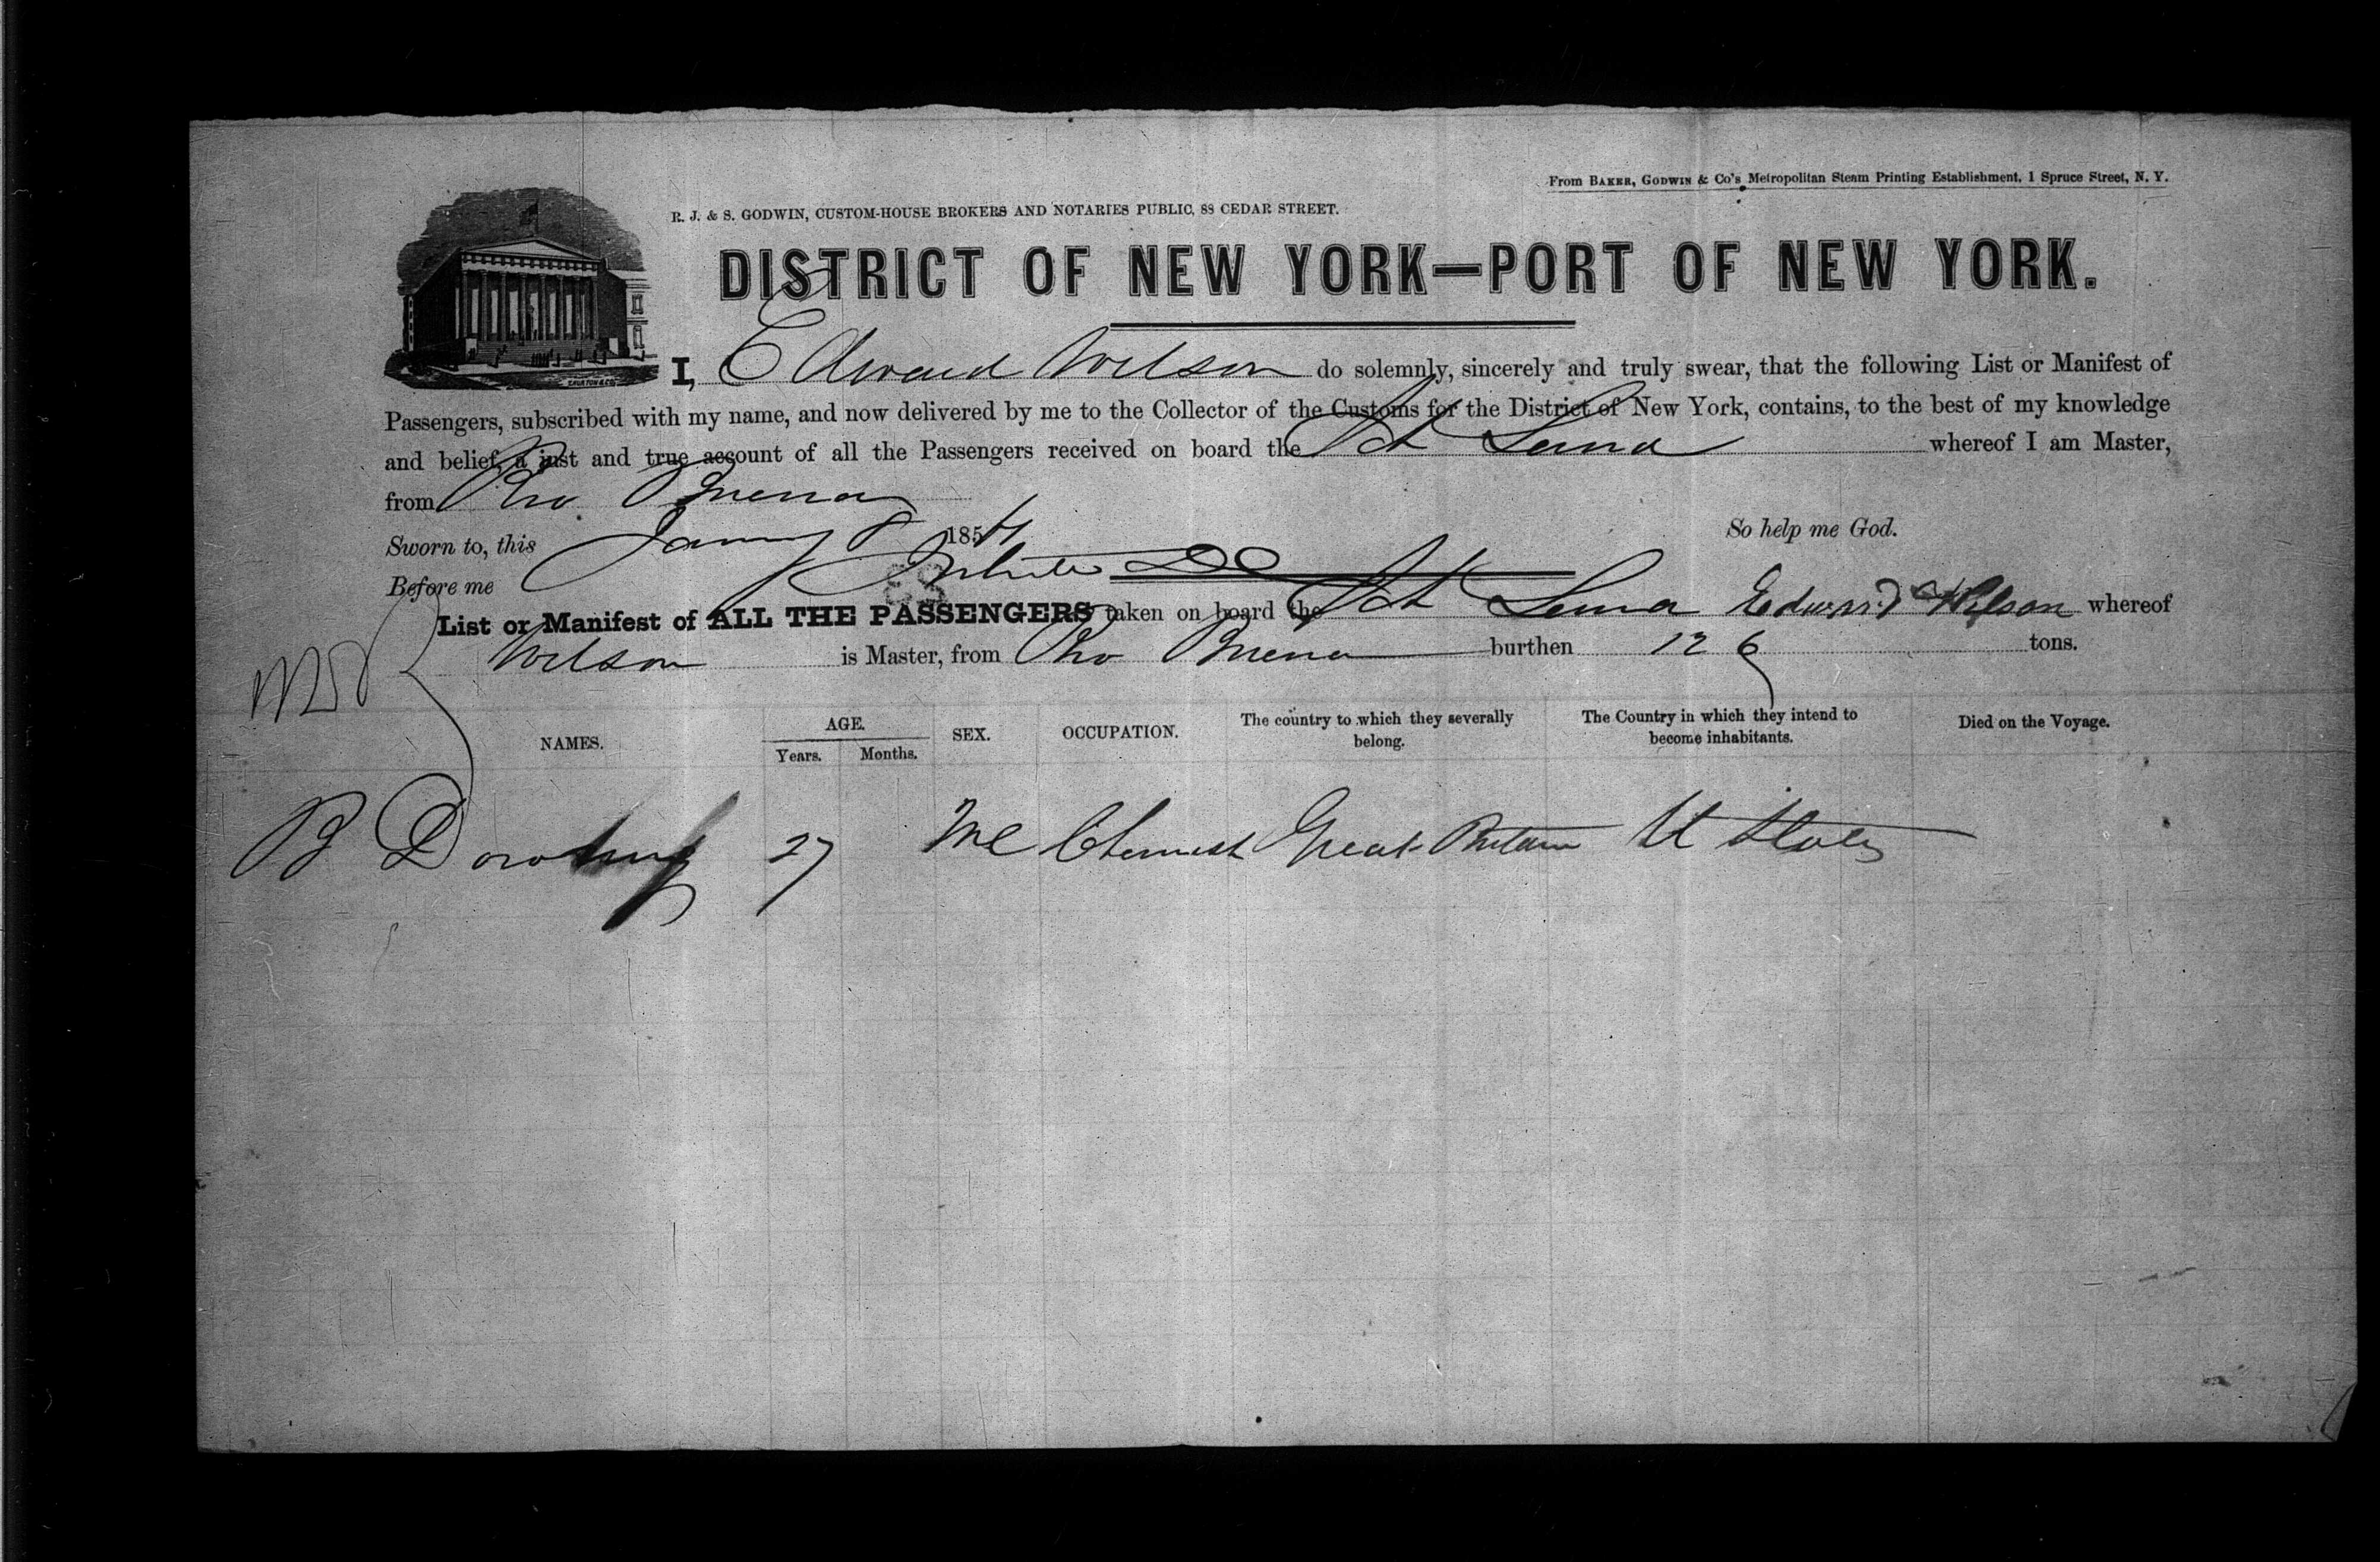 From BAKER, GODWIN & Co's Metropolitan Steam Printing Establishment, 1 Spruce Street, N. Y.
R. J. & S. GODWIN, CUSTOM-HOUSE BROKERS AND NOTARIES PUBLIC, 88 CEDAR STREET.
DISTRICT OF NEW YORK—PORT OF NEW YORK.
I, Edward Wilson do solemnly, sincerely and truly swear, that the following List or Manifest of
Passengers, subscribed with my name, and now delivered by me to the Collector of the Customs for the District of New York, contains, to the best of my knowledge
and belief, a just and true account of all the Passengers received on board the whereof I am Master,
from
Sworn to, this Jany 8 1854 So help me God.
Before me
List or Manifest of ALL THE PASSENGERS taken on board the Edward Wilson whereof
Wilson is Master, from burthen 126 tons.
NAMES. AGE. SEX. OCCUPATION. The country to which they severally belong. The Country in which they intend to become inhabitants. Died on the Voyage.
Years. Months.
B 27 Me Chemist Great Britain U States